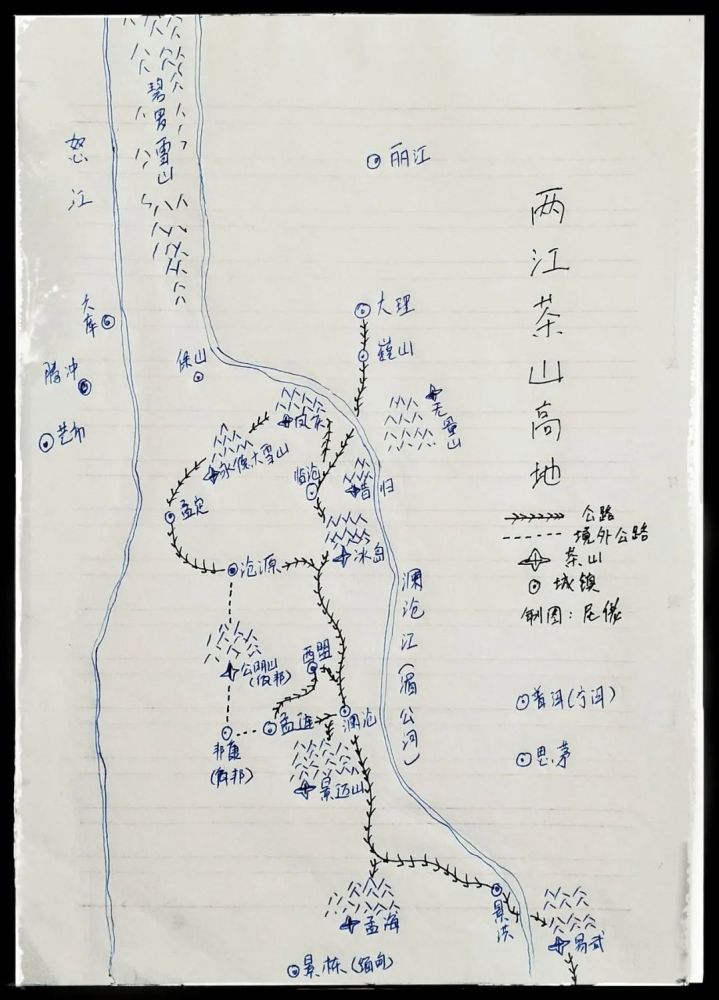 两江茶山高地
碧罗雪山
怒江
丽江
六库
大理
巍山
保山
腾冲
芒市
无量山
凤庆
永德大雪山
临沧
昔归
孟定
公路
境外公路
茶山
城镇
制图：尼佬
冰岛
沧源
澜沧江（湄公河）
西盟
公明山
（佤邦）
普洱（宁洱）
孟连
澜沧
邦康
（佤邦）
思茅
景迈山
景洪
勐海
易武
景栋（缅甸）